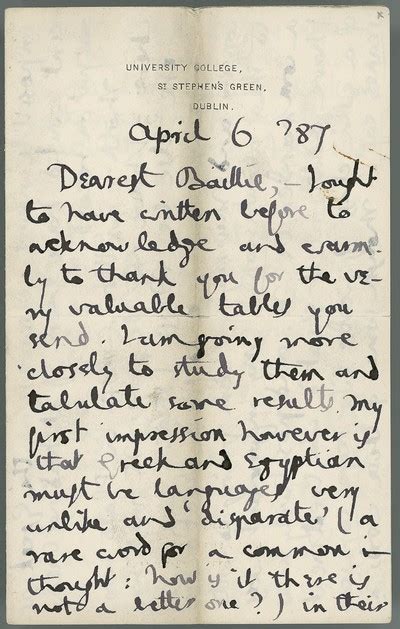 UNIVERSITY COLLEGE,
ST STEPHEN'S GREEN,
DUBLIN.
April 6 '87
Dearest Baillie, – I ought
to have written before to
acknowledge and warm-
ly to thank you for the ve-
ry valuable tables you
send. I am going more
closely to study them and
tabulate some results. My
first impression however is
that Greek and Egyptian
must be languages very
unlike and 'disparate' (a
rare word for a common
thought: how is it there is
not a better one?) in their